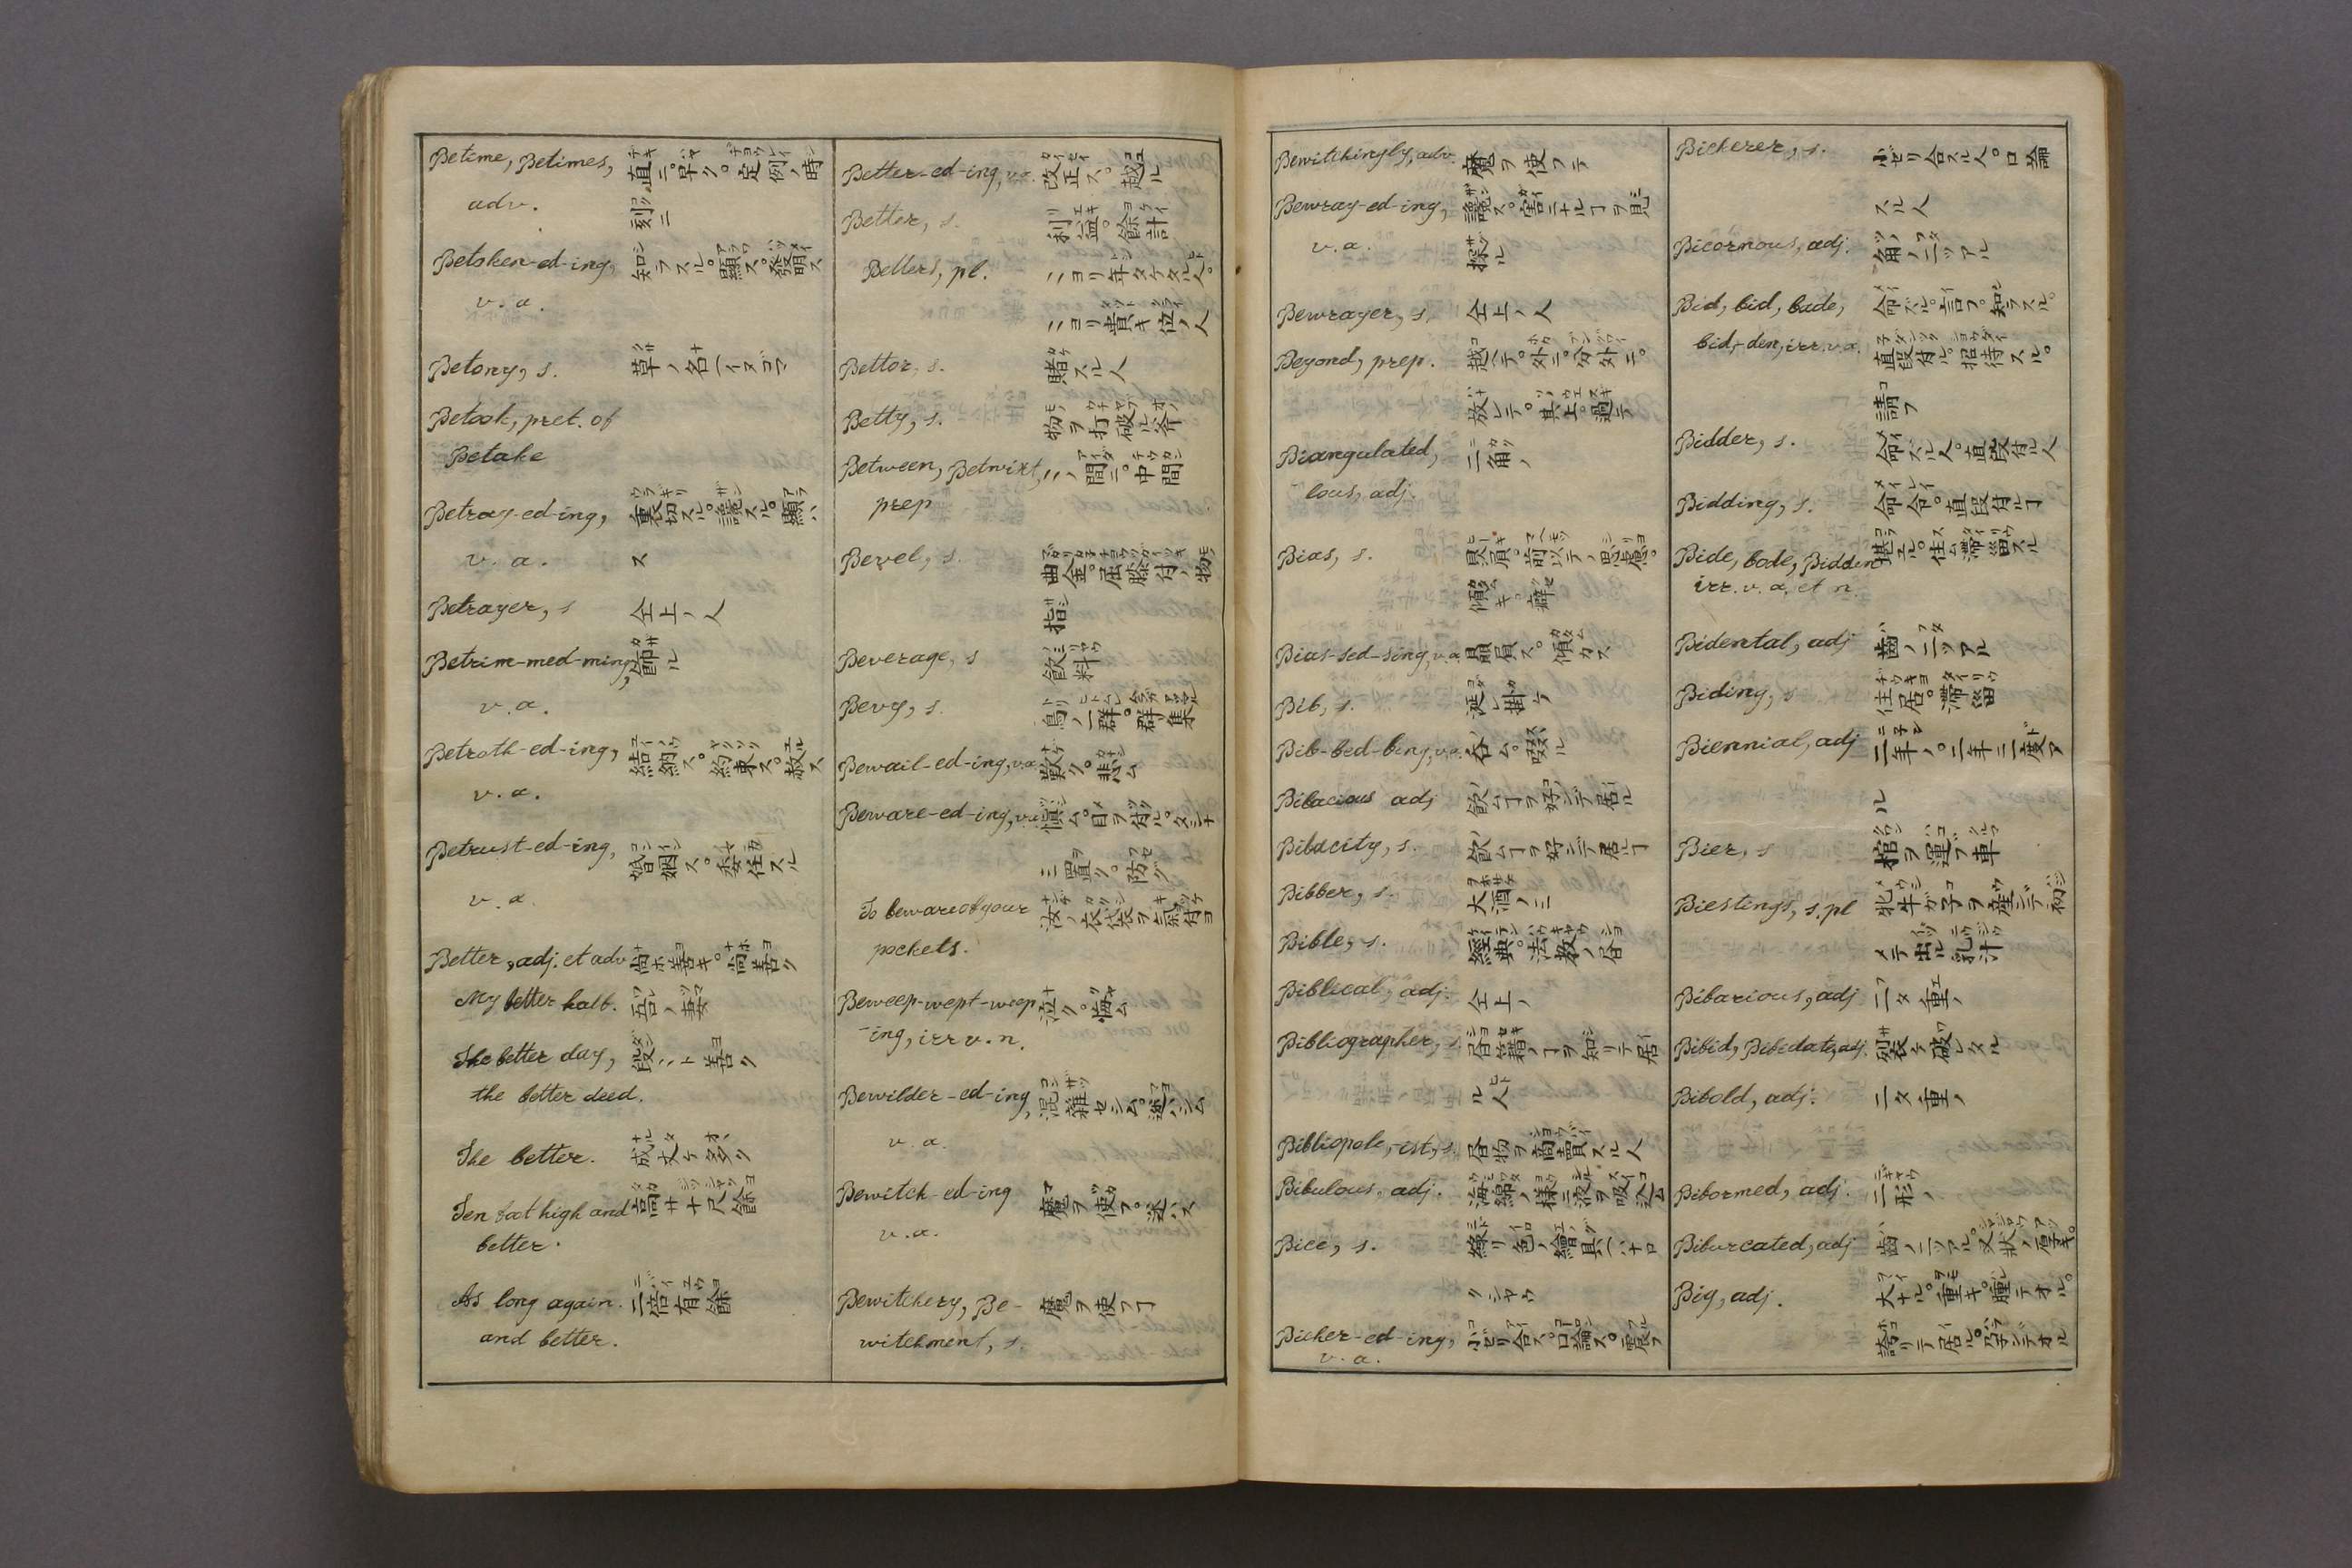 Betime, Betimes, 直ニ。早ク。定例ノ時
adv. 刻ニ
Betoken-ed-ing, 知ラスル。顯ス。發明ス
v. a.
Betony, s. 草ノ名
Betook, pret. of
Betake
Betray-ed-ing, 裏切スル。讒スル。顯ハ
v. a. ス
Betrayer, s 仝上ノ人
Betrim-med-ming, 飾ル
v. a.
Betroth-ed-ing, 結納ス。約束ス。
v. a.
Betrust-ed-ing, 婚姻ス。委任スル
v. a.
Better, adj. et adv 尚ホ善キ。尚善ク
My better half. 吾ノ妻
The better day, 段々ト善ク
the better deed.
The better. 成丈ケ多ク
Ten foot high and 高サ十尺餘
better.
As long again. 二倍有餘
and better.
Better-ed-ing, v.a. 改正ス。越ル
Better, s. 利益。餘計
Betters, pl. ヨリ年タケタル人。
ヨリ貴キ位ノ人
Bettor, s. 賭スル人
Betty, s. 物ヲ打破ル斧
Between, Betwixt, ノ間ニ。中間
prep
Bevel, s. 曲金。
指
Beverage, s 飲料
Bevy, s. 鳥ノ一群。群集
Bewail-ed-ing, v.a 歎ク。悲ム
Beware-ed-ing, v.a 慎ム。目ヲ付ル。
ミ置ク。防グ
To beware of your 汝ノ衣袋ヲ氣付ヨ
pockets.
Beweep-wept-weep 泣ク。悔ム
-ing, irr v. n.
Bewilder-ed-ing, 混雜セシム。迷ハシム
v. a.
Bewitch-ed-ing 魔ヲ使フ。迷ハス
v. a.
Bewitchery, Be- 魔ヲ使フヿ
witchment, s.
Bewitchingly, adv. 魔ヲ使フテ
Bewray-ed-ing, 讒ス。害ニナルヿヲ見
v. a. 探ル
Bewrayer, s. 仝上ノ人
Beyond, prep. 越ヘテ。外ニ。分外ニ。
放レテ。其上。過テ
Biangulated, 二角ノ
lous, adj.
Bias, s. 贔屓。前以テノ思慮。
傾キ。癖
Bias-sed-sing, v.a. 贔屓ス。傾カス
Bib, s. 涎レ掛ケ
Bib-bed-bing, v.a. 呑ム。啜ル
Bibacious adj 飲ムヿヲ好ンデ居ル
Bibacity, s. 飲ムヿヲ好ンデ居ルヿ
Bibber, s. 大酒ノミ
Bible, s. 經典。法教ノ書
Biblical, adj. 仝上ノ
Bibliographer, s 書籍ノヿヲ知リテ居
ル人
Bibliopole,-ist, s. 書物ヲ商賣スル人
Bibulous. adj. 海綿ノ様ニ液ヲ吸込ム
Bice, s. 緑リ色ノ繪具
クシャウ
Bicker-ed-ing, 小ゼリ合ス。口論ス。震フ
v. a.
Bickerer, s. 小ゼリ合スル人。口論
スル人
Bicornous, adj. 角ノ二ツアル
Bid, bid, bade, 命ズル。言フ。知ラスル。
bid,-den, irr. v. a. 直段付ル。招待スル。
請フ
Bidder, s. 命ズル人。直段付ル人
Bidding, s. 命令。直段付ルヿ
Bide, bode, Bidden 堪エル。住ム。滯留スル
irr. v. a. et n.
Bidental, adj 齒ノ二ツアル
Biding, s 住居。滯留
Biennial, adj 二年ノ。二年ニ一度ア
ル
Bier, s 棺ヲ運ブ車
Biestings, s. pl 牝牛ガ子ヲ産ンデ初
メテ出ル乳汁
Bifarious, adj 二タ重ノ
Bifid, Bifidate, adj. 裂ケ破レタル
Bifold, adj. 二タ重ノ
Biformed, adj. 二形ノ
Bifurcated, adj 齒ノ二ツアル。叉状ノ
Big, adj. 大ナル。重キ。腫テオル。
誇リテ居ル。孕ンデオル